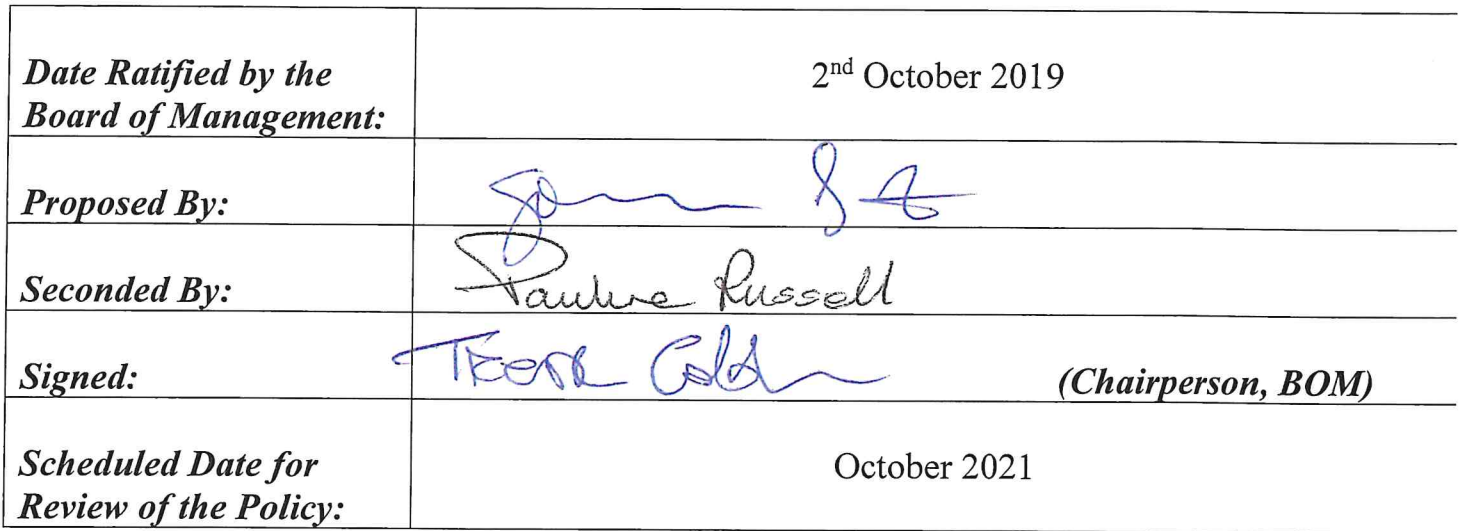 Date Ratified by the
Board of Management:
2nd October 2019
Proposed By:
Seconded By:
Pauline Russell
Signed:
(Chairperson, BOM)
Scheduled Date for
Review of the Policy:
October 2021